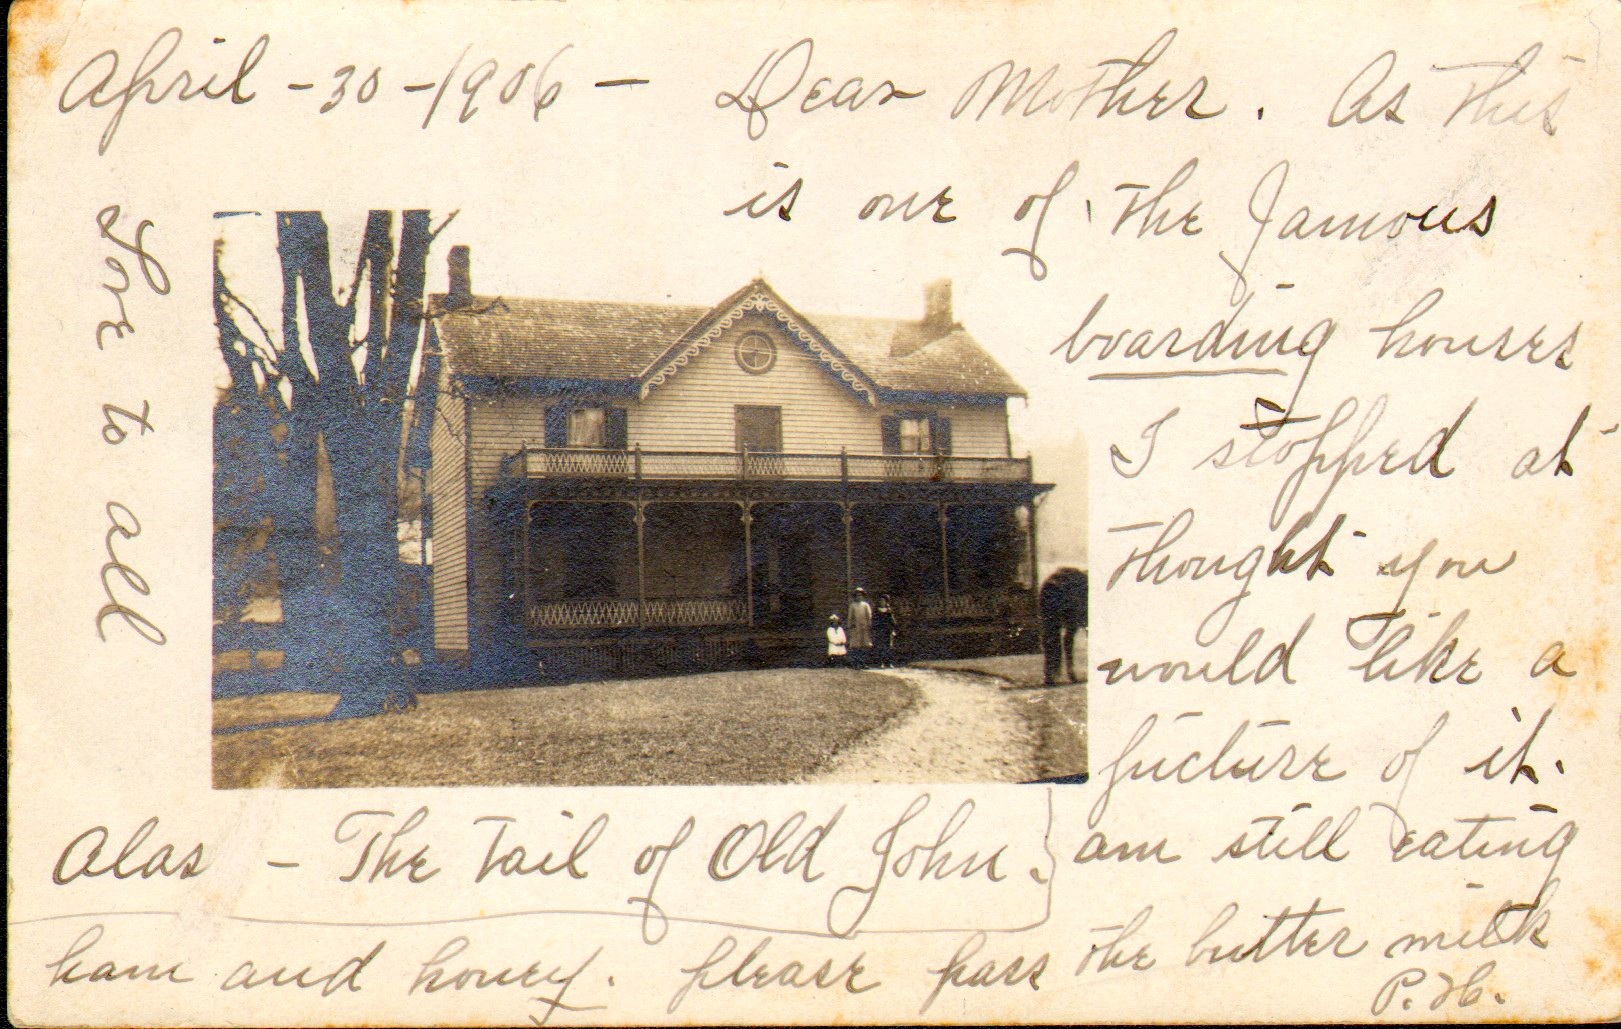 April - 30 - 1906 - Dear Mother. As this
is one of the famous
boarding houses
I stopped at
thought you
would like a
picture of it.
am still eating
ham and honey. please pass the butter milk
P. H.
Alas - The Tail of Old John.
Love to all